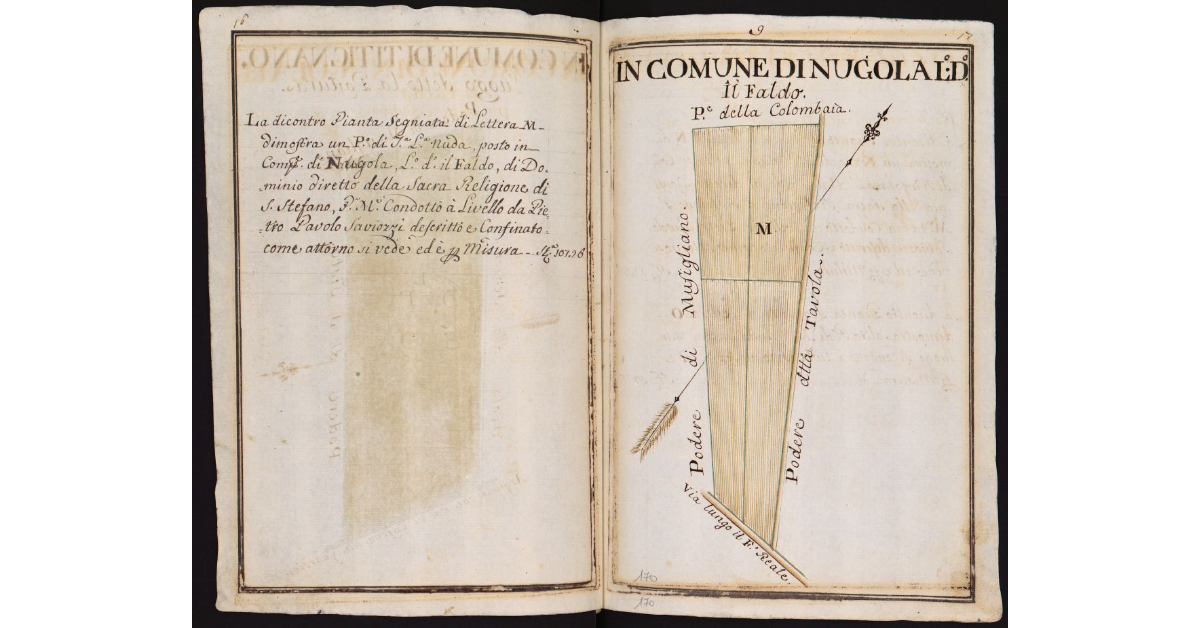 16
La dicontro Pianta Segniata di Lettera M-
dimostra un P.º di T.ª L.ª nuda, posto in
di Nugola, L.º d.º il Faldo, di Do-
minio diretto della Sacra Religione di
S. Stefano, Condotto à Livello da Pie-
tro Pavolo Saviozzi descritto e Confinato
come attorno si vede ed è Misura
IN COMUNE DI TITIGNANO.
9
17
IN COMUNE DI NUGOLA L:º D:º
Il Faldo.
P.e della Colombaia.
M
Podere di Musigliano.
Podere dttá Tavola.
Via lungo il F.º Reale.
170
170